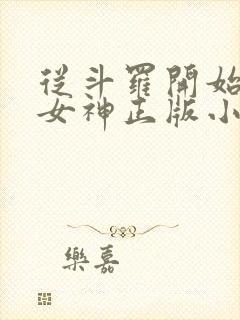 從斗羅開始
女神正版小
樂嘉